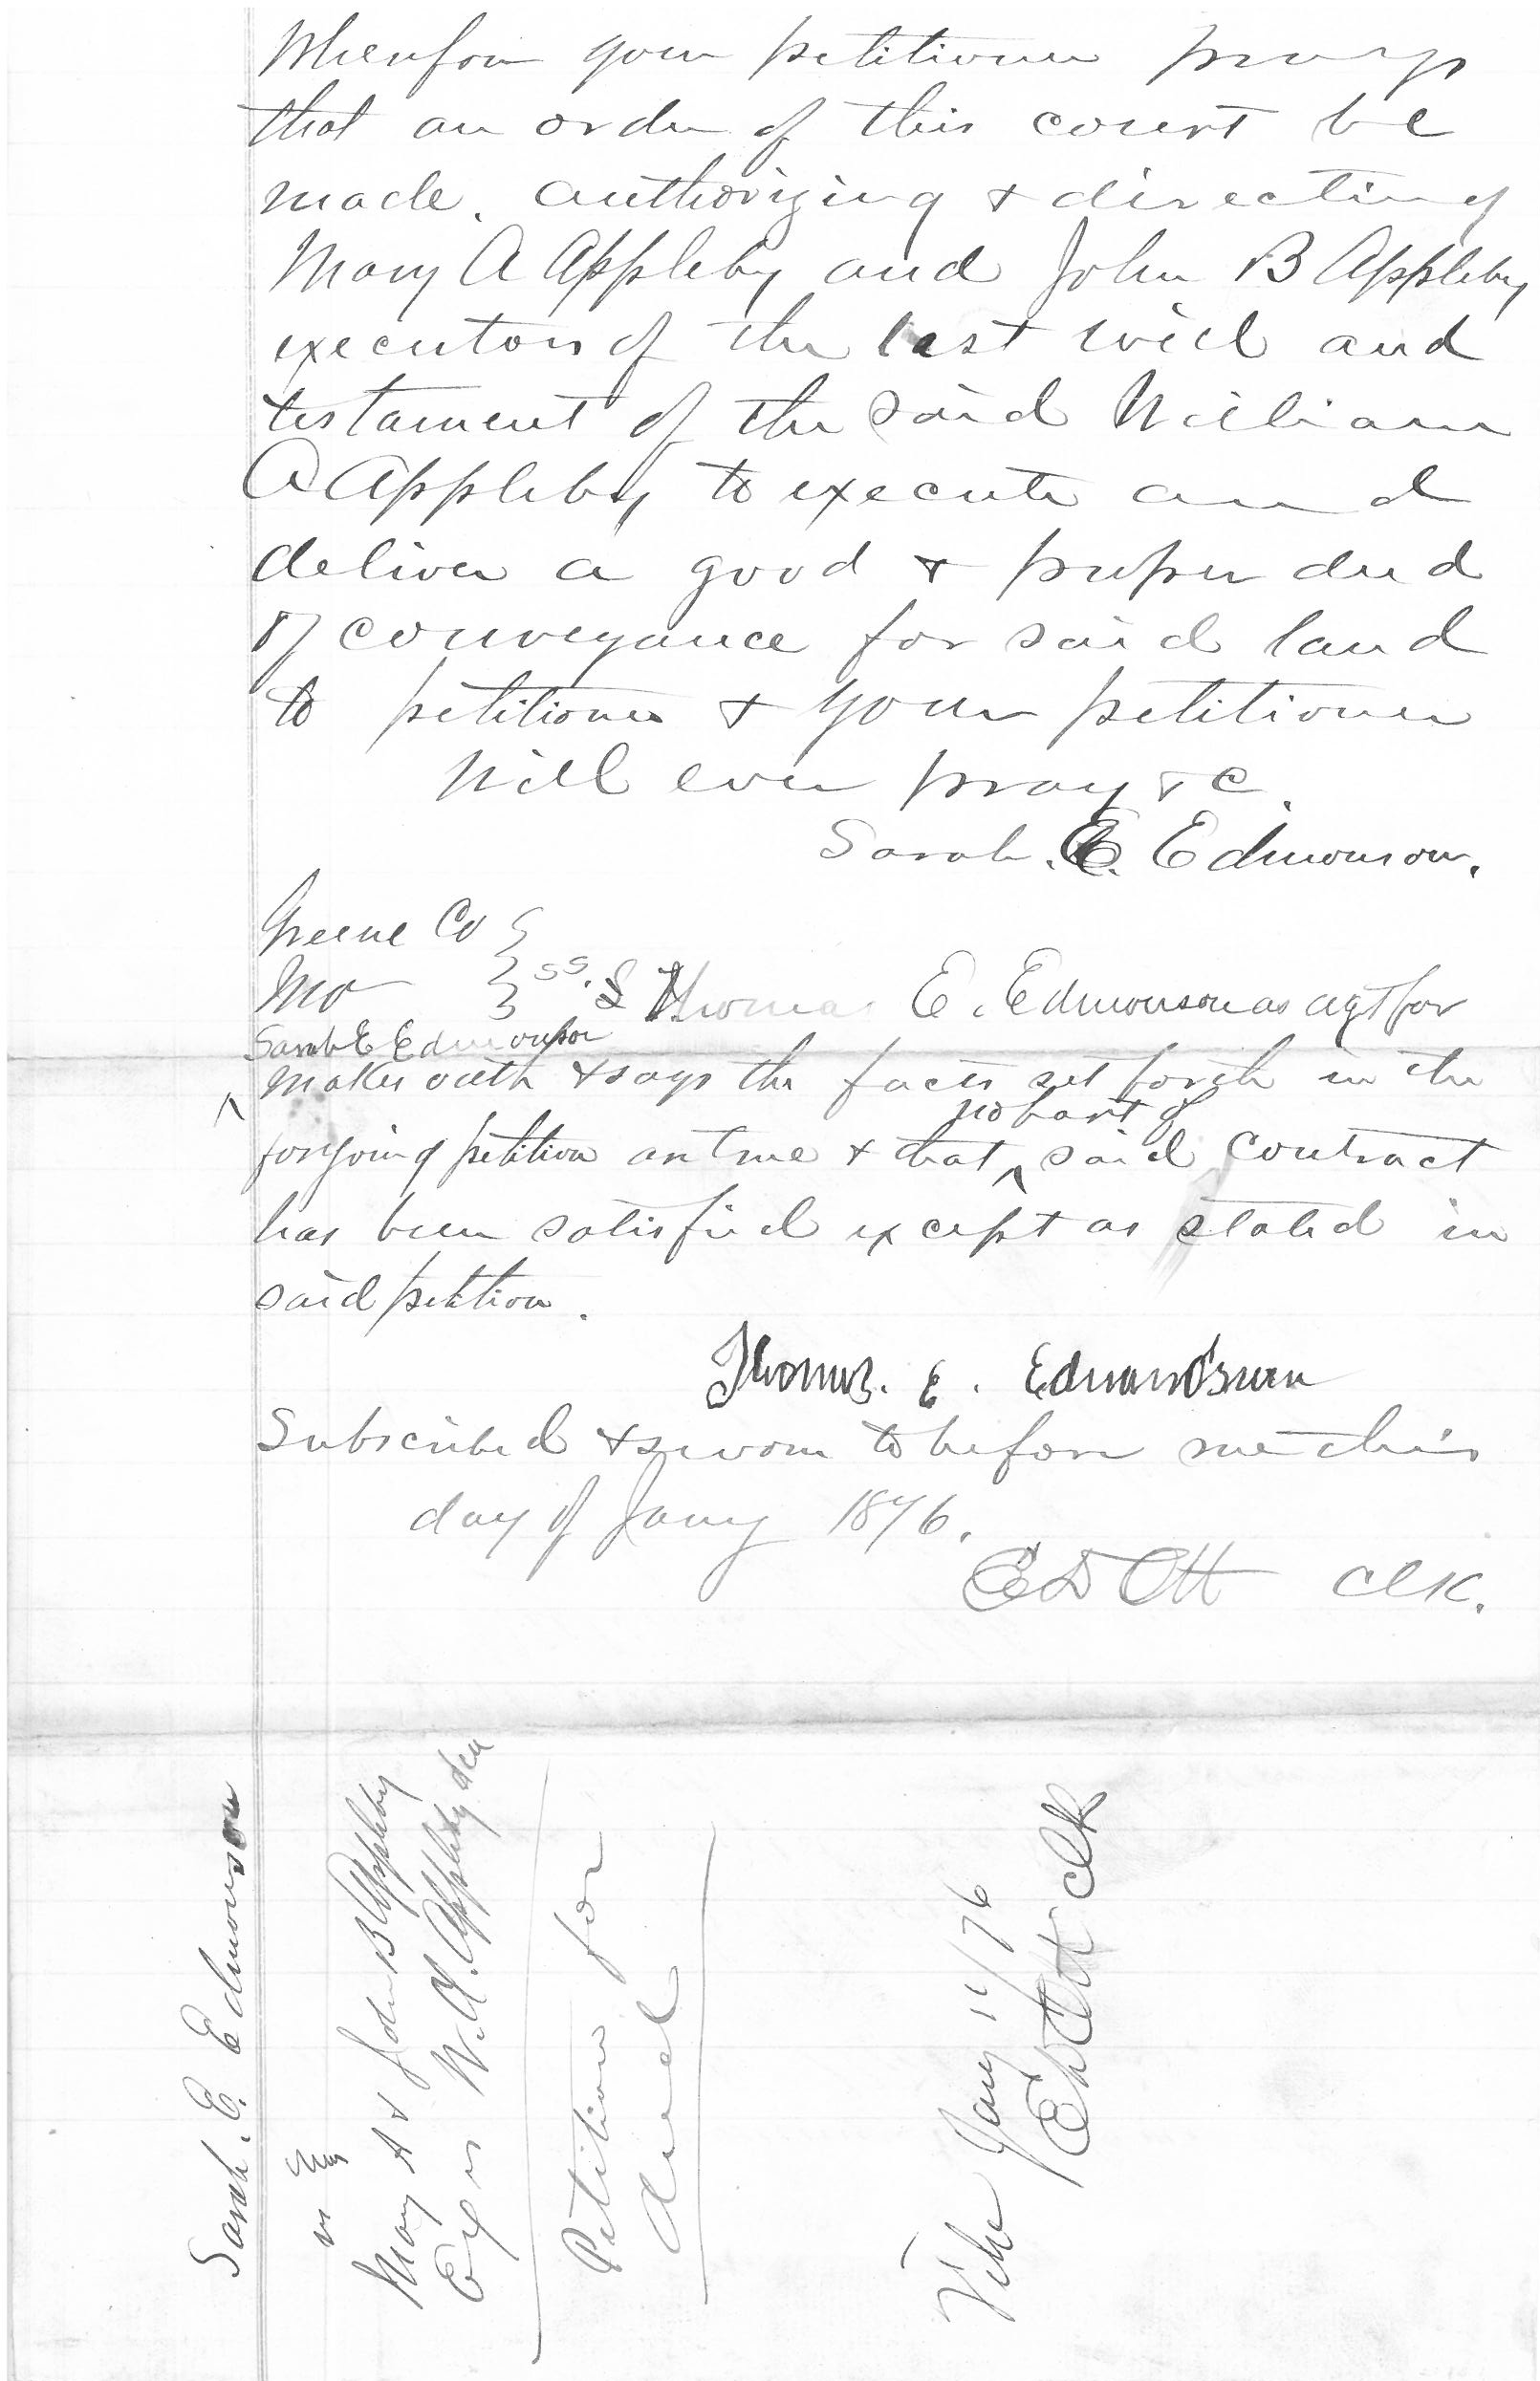 Wherefore your petitioner prays
that an order of this court be
made. authorizing & directing
Mary A Appleby and John B Appleby
executors of the last will and
testament of the said William
A Appleby to execute and
deliver a good & proper deed
of conveyance for said land
to petitioner & your petitioner
will ever pray &c.
Sarah. E. Edmonson.
Greene Co
Mo ss. I Thomas E. Edmonson as agt for
Sarah E Edmonson
makes oath & says the facts set forth in the
no part of
forgoing petition are true & that said contract
has been satisfied except as stated in
said petition.
Thomas. E. Edmondson
Subscribed & sworn to before me this
day of Jany 1876.
E D Ott Clk.
Sarah. E. Edmonson
vs
Mary A & John B Appleby
Exrs W. A. Appleby decd
Petition for
deed
File Jany 11/76
E D Ott Clk